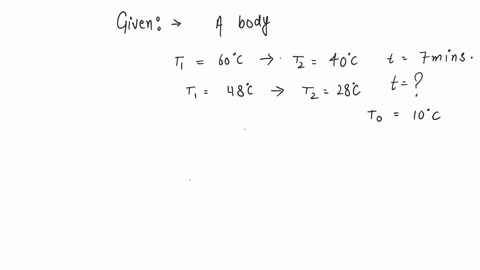 Given:→ A body
T₁ = 60°C → T₂ = 40°C t = 7mins.
T₁ = 48°C → T₂ = 28°C t = ?
T₀ = 10°C